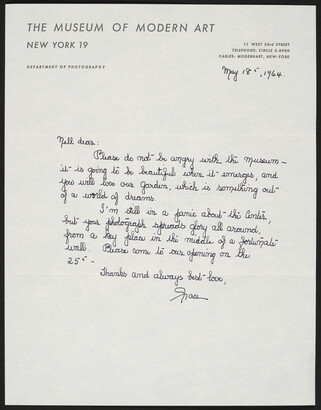 THE MUSEUM OF MODERN ART
NEW YORK 19
11 WEST 53rd STREET
TELEPHONE: CIRCLE 5-8900
CABLES: MODERNART, NEW-YORK
DEPARTMENT OF PHOTOGRAPHY
May 18th, 1964.
Nell dear:
Please do not be angry with the museum —
it is going to be beautiful when it emerges, and
you will love our Garden, which is something out
of a world of dreams.
I'm still in a panic about the Center,
but your photograph spreads glory all around,
from a key place in the middle of a fortunate
wall. Please come to our opening on the
25th —
Thanks and always best love,
Grace